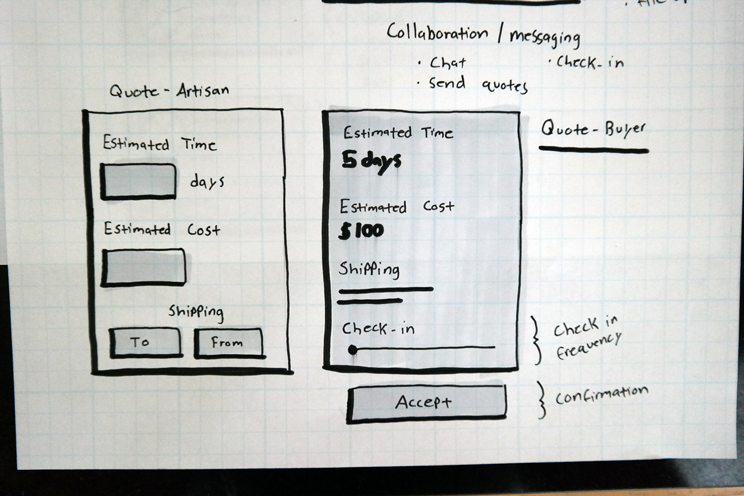 Collaboration / messaging
· Chat
· Check-in
· Send quotes
Quote - Artisan
Estimated Time
days
Estimated Cost
Shipping
To
From
Quote - Buyer
Estimated Time
5 days
Estimated Cost
$100
Shipping
Check-in
Check in
frequency
Accept
Confirmation